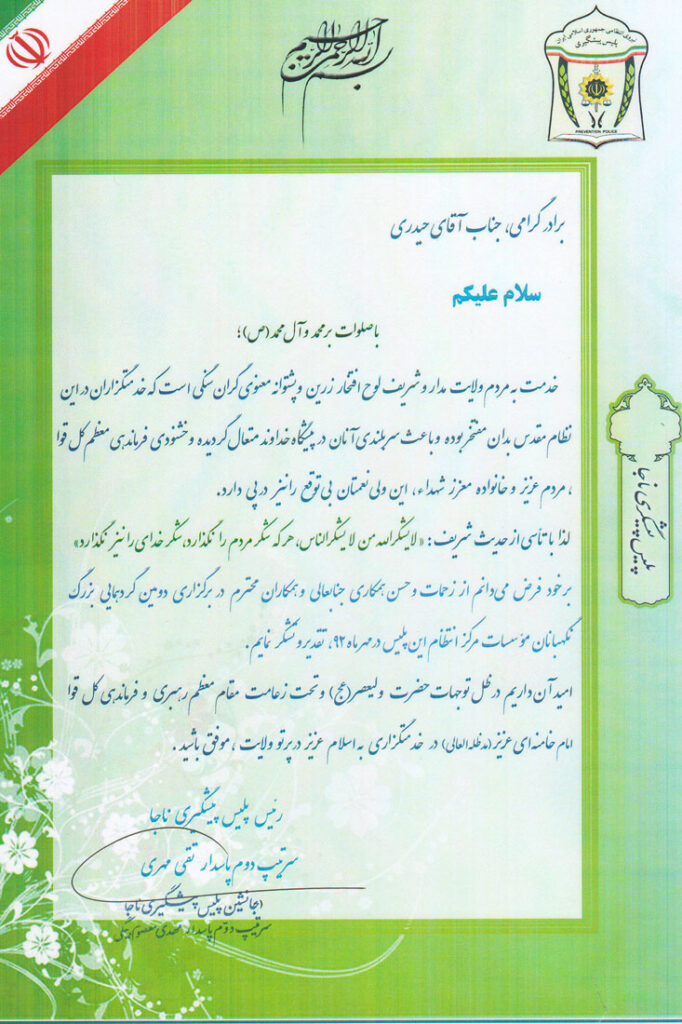 بسم الله الرحمن الرحیم
نیروی انتظامی جمهوری اسلامی ایران
پلیس پیشگیری
PREVENTION POLICE
برادر گرامی، جناب آقای حیدری
سلام علیکم
با صلوات بر محمد و آل محمد (ص)؛
خدمت به مردم ولایت مدار و شریف لوح افتخار زرین و پشتوانه معنوی گران سنگی است که خدمتگزاران در این
نظام مقدس بدان مفتخر بوده و باعث سربلندی آنان در پیشگاه خداوند متعال گردیده و خشنودی فرماندهی معظم کل قوا
، مردم عزیز و خانواده معزز شهداء، این ولی نعمتان بی توقع را نیز در پی دارد.
لذا با تأسی از حدیث شریف: «لایشکرالله من لایشکرالناس، هر که شکر مردم را نگذارد، شکر خدای را نیز نگذارد»
بر خود فرض می‌دانم از زحمات و حسن همکاری جنابعالی و همکاران محترم در برگزاری دومین گردهمایی بزرگ
نگهبانان مؤسسات مرکز انتظام این پلیس در مهر ماه ۹۲، تقدیر و تشکر نمایم.
امید آن داریم در ظل توجهات حضرت ولیعصر (عج) و تحت زعامت مقام معظم رهبری و فرماندهی کل قوا
امام خامنه ای عزیز (مدظله العالی) در خدمتگزاری به اسلام عزیز در پرتو ولایت ، موفق باشید .
رئیس پلیس پیشگیری ناجا
سرتیپ دوم پاسدار تقی مهری
جانشین پلیس پیشگیری ناجا
سرتیپ دوم پاسدار مهدی معصوم بیگی
پلیس پیشگیری ناجا